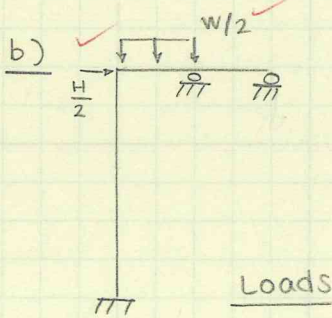 b)
W/2
H/2
Loads